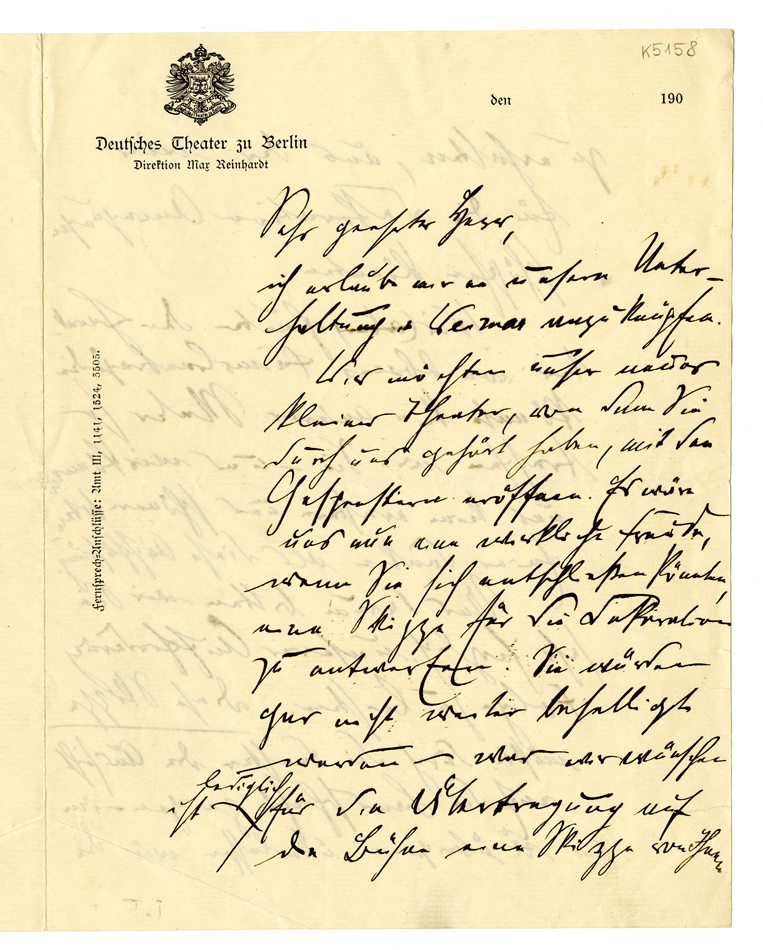 K5158
den 190
Deutsches Theater zu Berlin
Direktion Max Reinhardt
Fernsprech-Anschlüsse: Amt III, 1141, 1524, 3505.
Sehr geehrter Herr,
ich erlaube mir an unsere Unter-
haltung in Weimar anzuknüpfen.
Wir möchten unser neues
kleines Theater, von dem Sie
durch uns gehört haben, mit den
Gespenstern eröffnen. Es wäre
uns nun eine wirkliche Freude,
wenn Sie sich entschließen könnten,
eine Skizze für die Dekoration
zu entwerfen. Sie würden
gar nicht weiter behelligt
werden – was wir wünschen
ist lediglich für die Übertragung auf
die Bühne eine Skizze von Ihnen